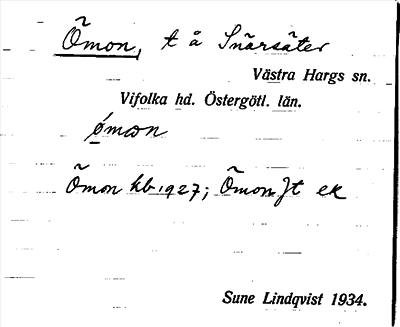 Ömon, t å Snärsäter
Västra Hargs sn.
Vifolka hd. Östergötl. län.
ømɷn
Ömon hb 1927; Ömon Jt ek
Sune Lindqvist 1934.